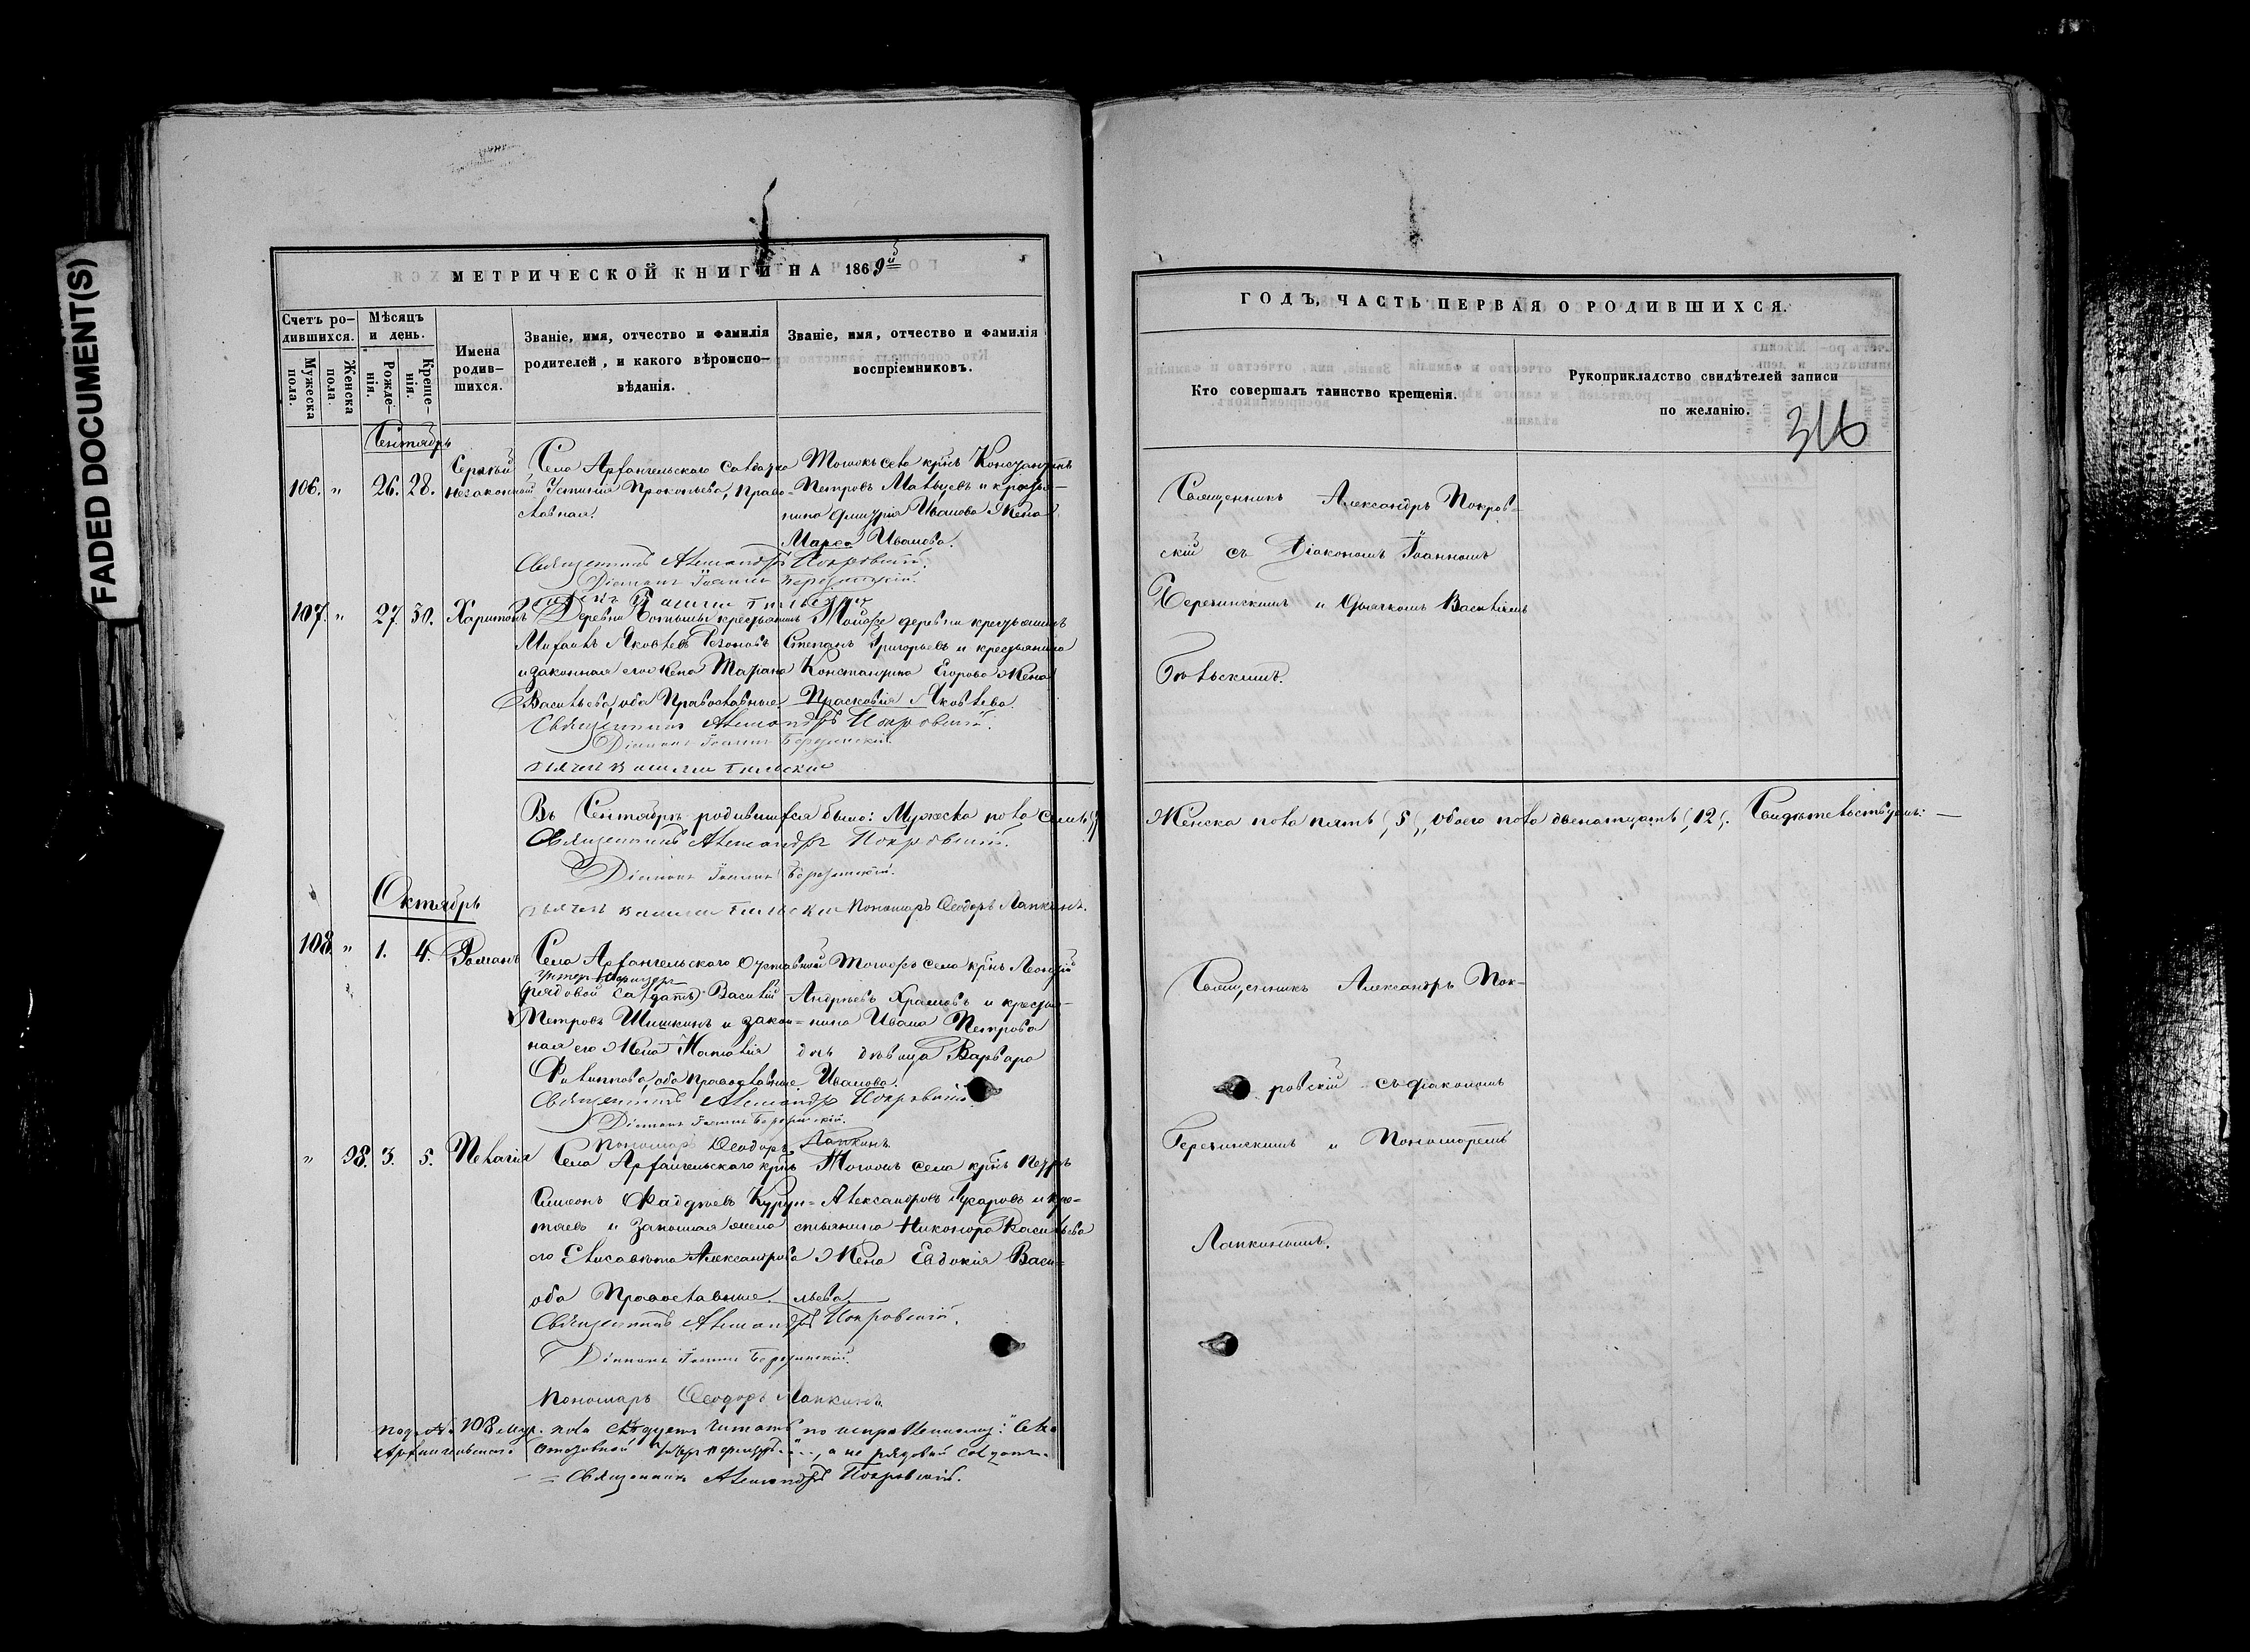 FADED DOCUMENT(S)
МЕТРИЧЕСКОЙ КНИГИ НА 1869й
Счетъ ро-
дившихся.
Мужеска
пола.
Женска
пола.
Мѣсяцъ
и день.
Рожде-
нія.
Креще-
нія.
Имена
родив-
шихся.
Званіе, имя, отчество и фамилія
родителей, и какого вѣроиспо-
вѣданія.
Званіе, имя, отчество и фамилія
воспріемниковъ.
Сентябрь
106. " 26. 28.
Сергій
незаконный
Села Архангельскаго солдатка
Устинія Прокопьева, Право-
славная.
Тогожъ села крнъ Константинъ
Петровъ и крестья-
нина Димитрія Иванова жена
Марѳа Иванова.
Священникъ Александръ Покровскій.
Діаконъ Іоаннъ Березинскій.
107. " 27. 30. Харитонъ
Деревни крестьянинъ
Михаилъ Яковлевъ
и законная его жена Татіана
Васильева, оба Православные.
Тойже деревни крестьянинъ
Степанъ Григорьевъ и крестьянина
Константина Егорова жена
Прасковія Яковлева.
Священникъ Александръ Покровскій.
Діаконъ Іоаннъ Березинскій.
Въ Сентябрѣ родившихся было: Мужеска пола семь
Священникъ Александръ Покровскій.
Діаконъ Іоаннъ Березинскій.
Пономарь Ѳеодоръ Лапкинъ.
Октябрь
108. " 1. 4. Романъ
Села Архангельскаго Отставной
унтер-офицеръ
(рядовой салдатъ) Василій
Петровъ Шишкинъ и закон-
ная его жена Наталія
Филиппова, оба православные.
Тогоже села крнъ Леонтій
Андреевъ Храмовъ и крестья-
нина Ивана Петрова
дочь дѣвица Варвара
Иванова.
Священникъ Александръ Покровскій.
Діаконъ Іоаннъ Березинскій.
Пономарь Ѳеодоръ Лапкинъ.
" 98. 3. 5. Пелагія
Села Архангельскаго крнъ
Симеонъ Фаддѣевъ
и законная жена
его Елисавета Александрова
оба Православные.
Тогожъ села крнъ Петръ
Александровъ Гусаровъ и кре-
стьянина Никонора Васильева
жена Евдокія Васи-
льева
Священникъ Александръ Покровскій.
Діаконъ Іоаннъ Березинскій.
Пономарь Ѳеодоръ Лапкинъ.
подъ № 108 муж. пола слѣдуетъ читать по исправленному: "Села
Архангельскаго Отставной унтер-офицеръ", а не рядовой салдатъ.
Священникъ Александръ Покровскій.
ГОДЪ, ЧАСТЬ ПЕРВАЯ О РОДИВШИХСЯ.
Кто совершалъ таинство крещенія.
Рукоприкладство свидѣтелей записи
по желанію.
316
Священникъ Александръ Покров-
скій съ Діакономъ Іоанномъ
Березинскимъ и Дьячкомъ Василіемъ
Женска пола пять (5), обоего пола двенатцать (12). Свидѣтельствуемъ:
Священникъ Александръ Пок-
ровскій съ діакономъ
Березинскимъ и Пономоремъ
Лапкинымъ.